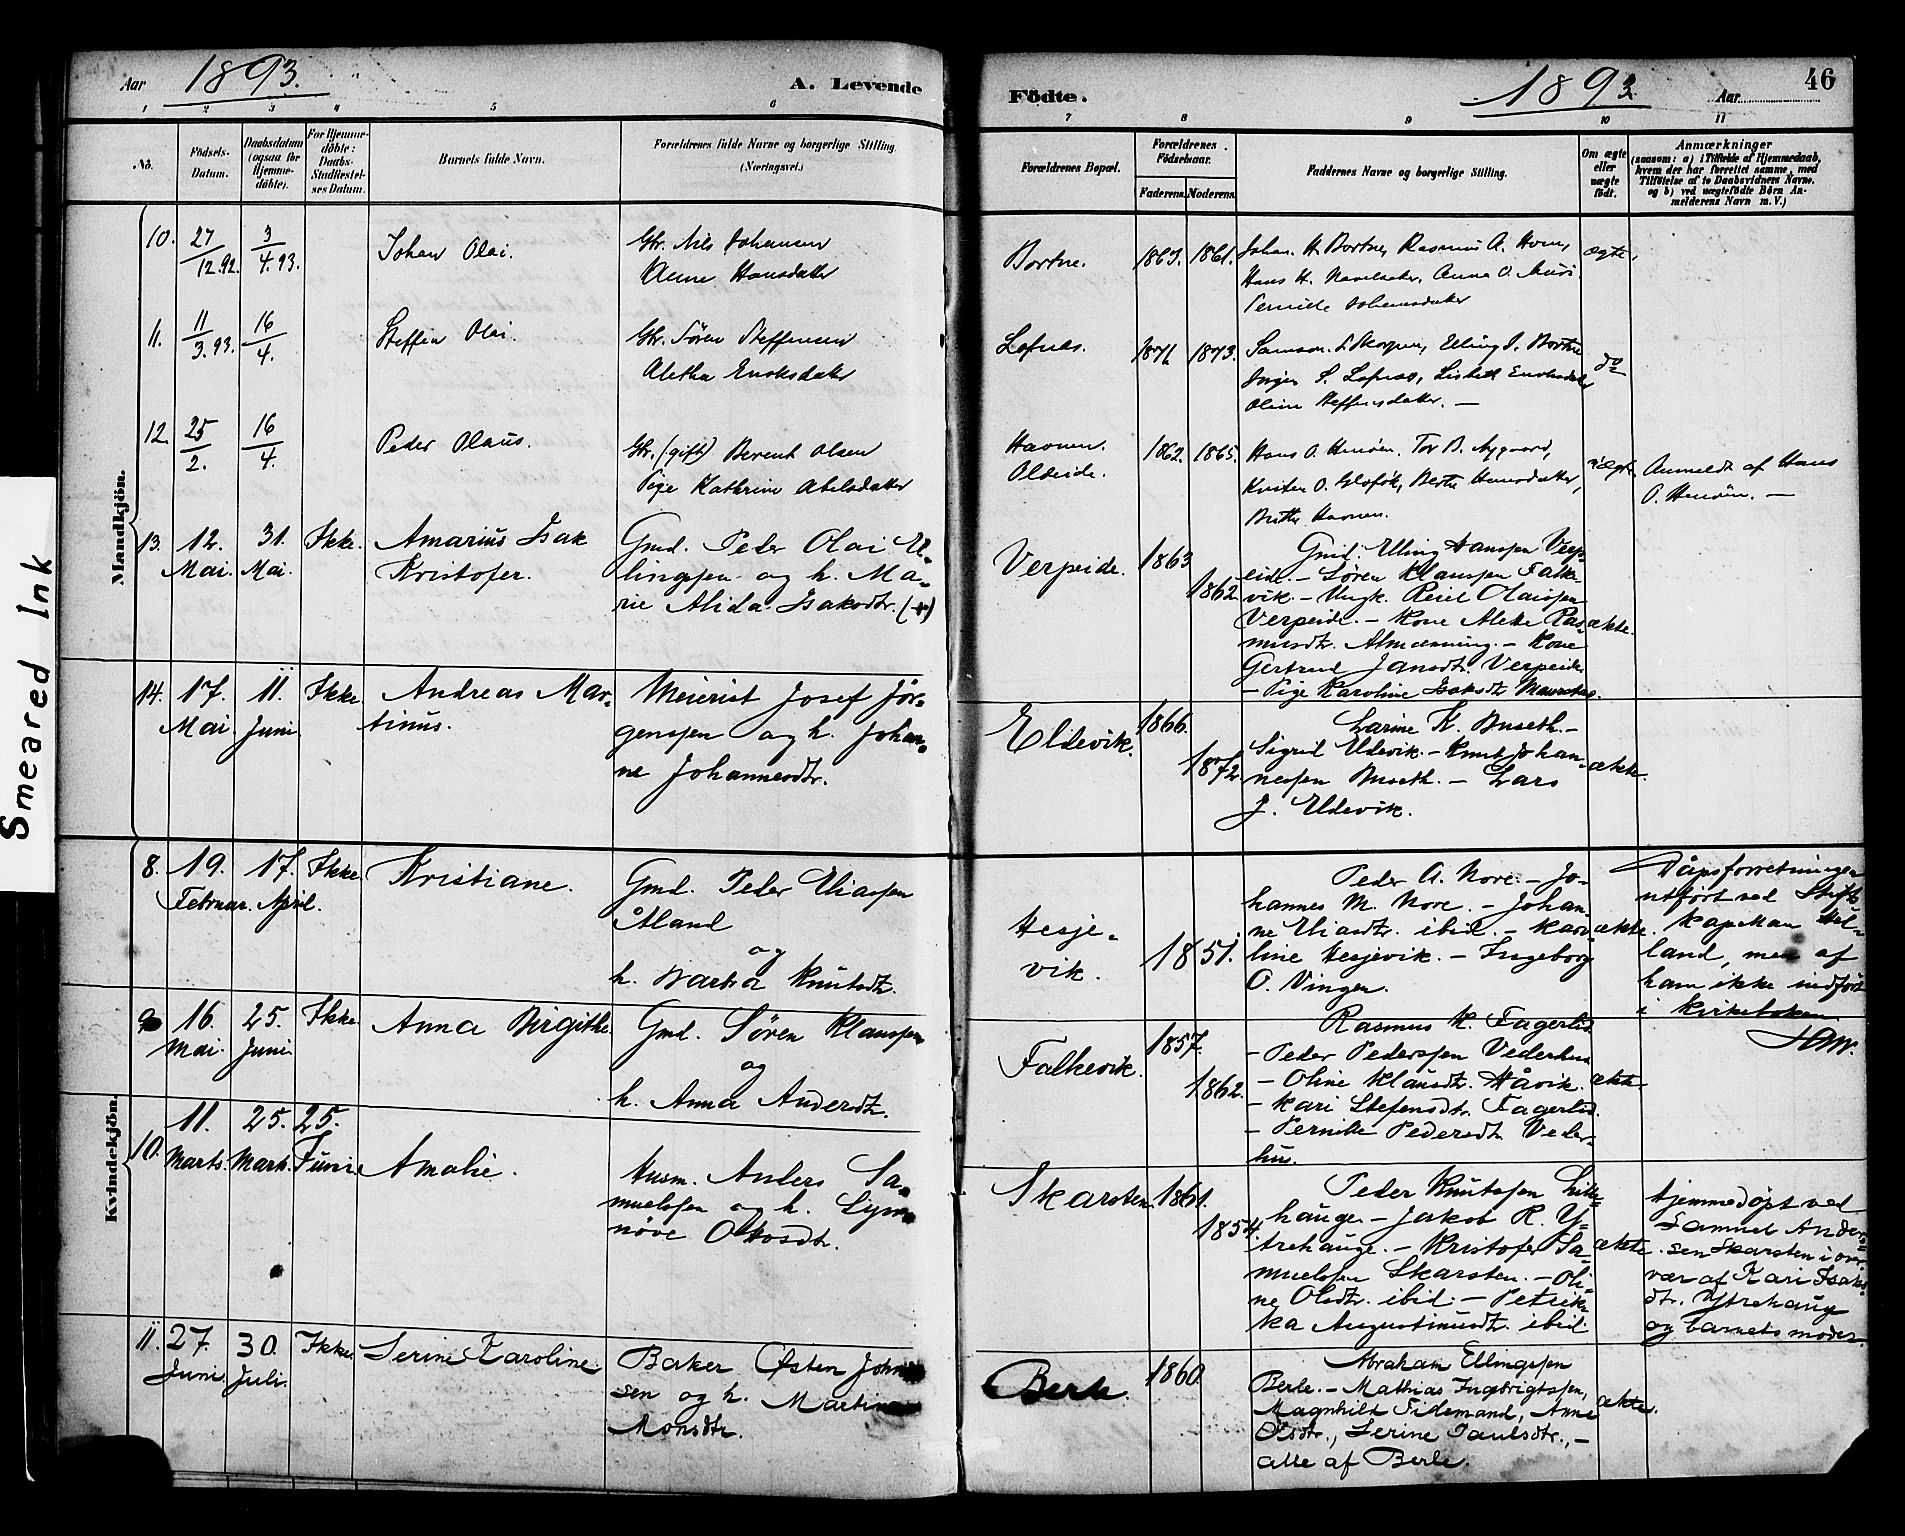 Smeared Ink
Aar 1893.
A. Levende
Födte.
1893
Aar
46
1 2 3 4 5 6
7 8 9 10 11
No.
Födsels-
Datum.
Daabsdatum
(ogsaa for
Hjemme-
döbte).
For Hjemme-
döbte:
Daabs-
Stadfæstel-
ses Datum.
Barnets fulde Navn.
Forældrenes fulde Navne og borgerlige Stilling
(Næringsvei.)
Forældrenes Bopæl.
Forældrenes
Födselsaar.
Faderens.
Moderens.
Faddernes Navne og borgerlige Stilling.
Om ægte
eller
uægte
födt.
Anmærkninger
(saasom: a) i Tilfælde af Hjemmedaab,
hvem der har forrettet samme, med
Tilföielse af to Daabsvidners Navne,
og b) ved uægtefödte Börn An-
melderens Navn m. V.)
Mandkjön.
10. 27/12.92. 3/4.93. Johan Olai. Gbr. Nils Johansen
Anne Hansdatter
Bortne. 1863. 1861. Johan H. Bortne, Rasmus A. Hovn,
Hans H. Anna O.
Pernille Johansdatter
ægte,
11. 11/3.93. 16/4. Steffen Olai. Gbr. Sören Steffensen
Aletha Enoksdatter
Lofnes. 1871. 1873. Samson Elling Bortne
Inger S. Lofnes, Lisbeth Enoksdatter
Oline Steffensdatter. —
do
12. 25/2. 16/4. Peder Olaus. Gbr. (gift) Berent Olsen
Pige Kathrine Abelsdatter
Havnen.
Oldeide.
1862. 1865. Hans O. Henöen. Tor B. Nygaard,
Kristen O. Berthe Hansdatter,
Brithe Havnen.
uægte Anmeldt af Hans
O. Henöen. —
13. 12. Mai. 31. Mai. Ikke. Amarius Isak
Kristofer.
Gmd. Peder Olai El-
lingssen og h. Ma-
rie Alida Isaksdtr. (+)
Verpeide. 1863 1862. Gmd. Elling Hanssen Verp-
eide. – Sören Klaussen Falke-
vik. – Ungk. Reiel Olaissen
Verpeide. – Kone Alette Ras-
musdtr. Almenning. – Kone
Gertrud Jansdtr. Verpeide
– Pige Karoline Isaksdtr
ækte.
14. 17. Mai. 11. Juni Ikke Andreas Mar-
tinus.
Meierist Josef Jör-
genssen og h. Johan-
ne Johannesdtr.
Eldevik. 1866. 1872. Larine K. Buseth. –
Sigrid Eldevik. – Knut Johan-
nessen Buseth. – Lars
J. Eldevik.
ækte.
Kvindekjön.
8. 19. Februar. 17. April. Ikke. Kristiane. Gmd. Peder Eliassen
Åland
og
h. Barbra Knutsdtr.
Hesje-
vik.
1851. Peder A. Nore. – Jo-
hannes M. Nore. – Johan-
ne Eliasdtr. ibid. – Karo-
line Hesjevik. – Ingeborg
O. Vingen.
ækte. Dåpsforretningen
utfört ved Stifts-
kapellan Hel-
land, men af
ham ikke indfört
i kirkeboken.
9 16. Mai. 25. Juni. Ikke Anna Birgithe Gmd. Sören Klaussen
og
h. Anna Andersdtr.
Falkevik. 1857. 1862. Rasmus K. Fagerlid.
– Peder Pederssen Vederhus
– Oline Klausdtr. Håvik.
– Kari Stefensdtr. Fagerlid.
– Pernille Pedersdtr. Veder-
hus.
ækte
10. 11. Marts. 25. Marts. 25. Juni Amalie. Husm. Anders Sa-
muelssen og h. Syn-
növe Ottosdtr.
Skarsten. 1861. 1854. Peder Knutssen Lille-
hauge – Jakob R. Y-
trehauge. – Kristofer Sa-
muelssen Skarsten. – Oli-
ne Olsdtr. ibid. – Petrik-
ka Augustinusdtr. ibid.
ækte. Hjemmedöpt ved
Samuel Anders-
sen Skarsten i over-
vær af Kari Isaks-
dtr. Ytrehauge
og barnets moder.
11. 27. Juni. 30. Juli. Ikke. Serine Karoline. Baker Östen Johns-
sen og h. Martine
Monsdtr.
Berle. 1860. Abraham Ellingssen
Berle. – Mathias Ingebrigtssen,
Magnhild Tidemand, Anne
Olsdtr., Serine Paulsdtr., –
alle af Berle.
ækte.